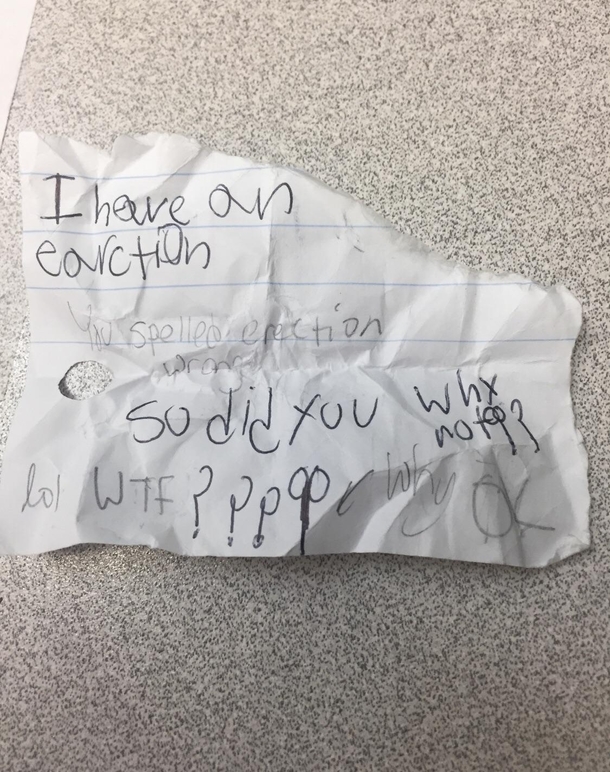 I have an
earction
You spelled erection
wrong
So did you
why
not??
lol WTF ????
why
OK